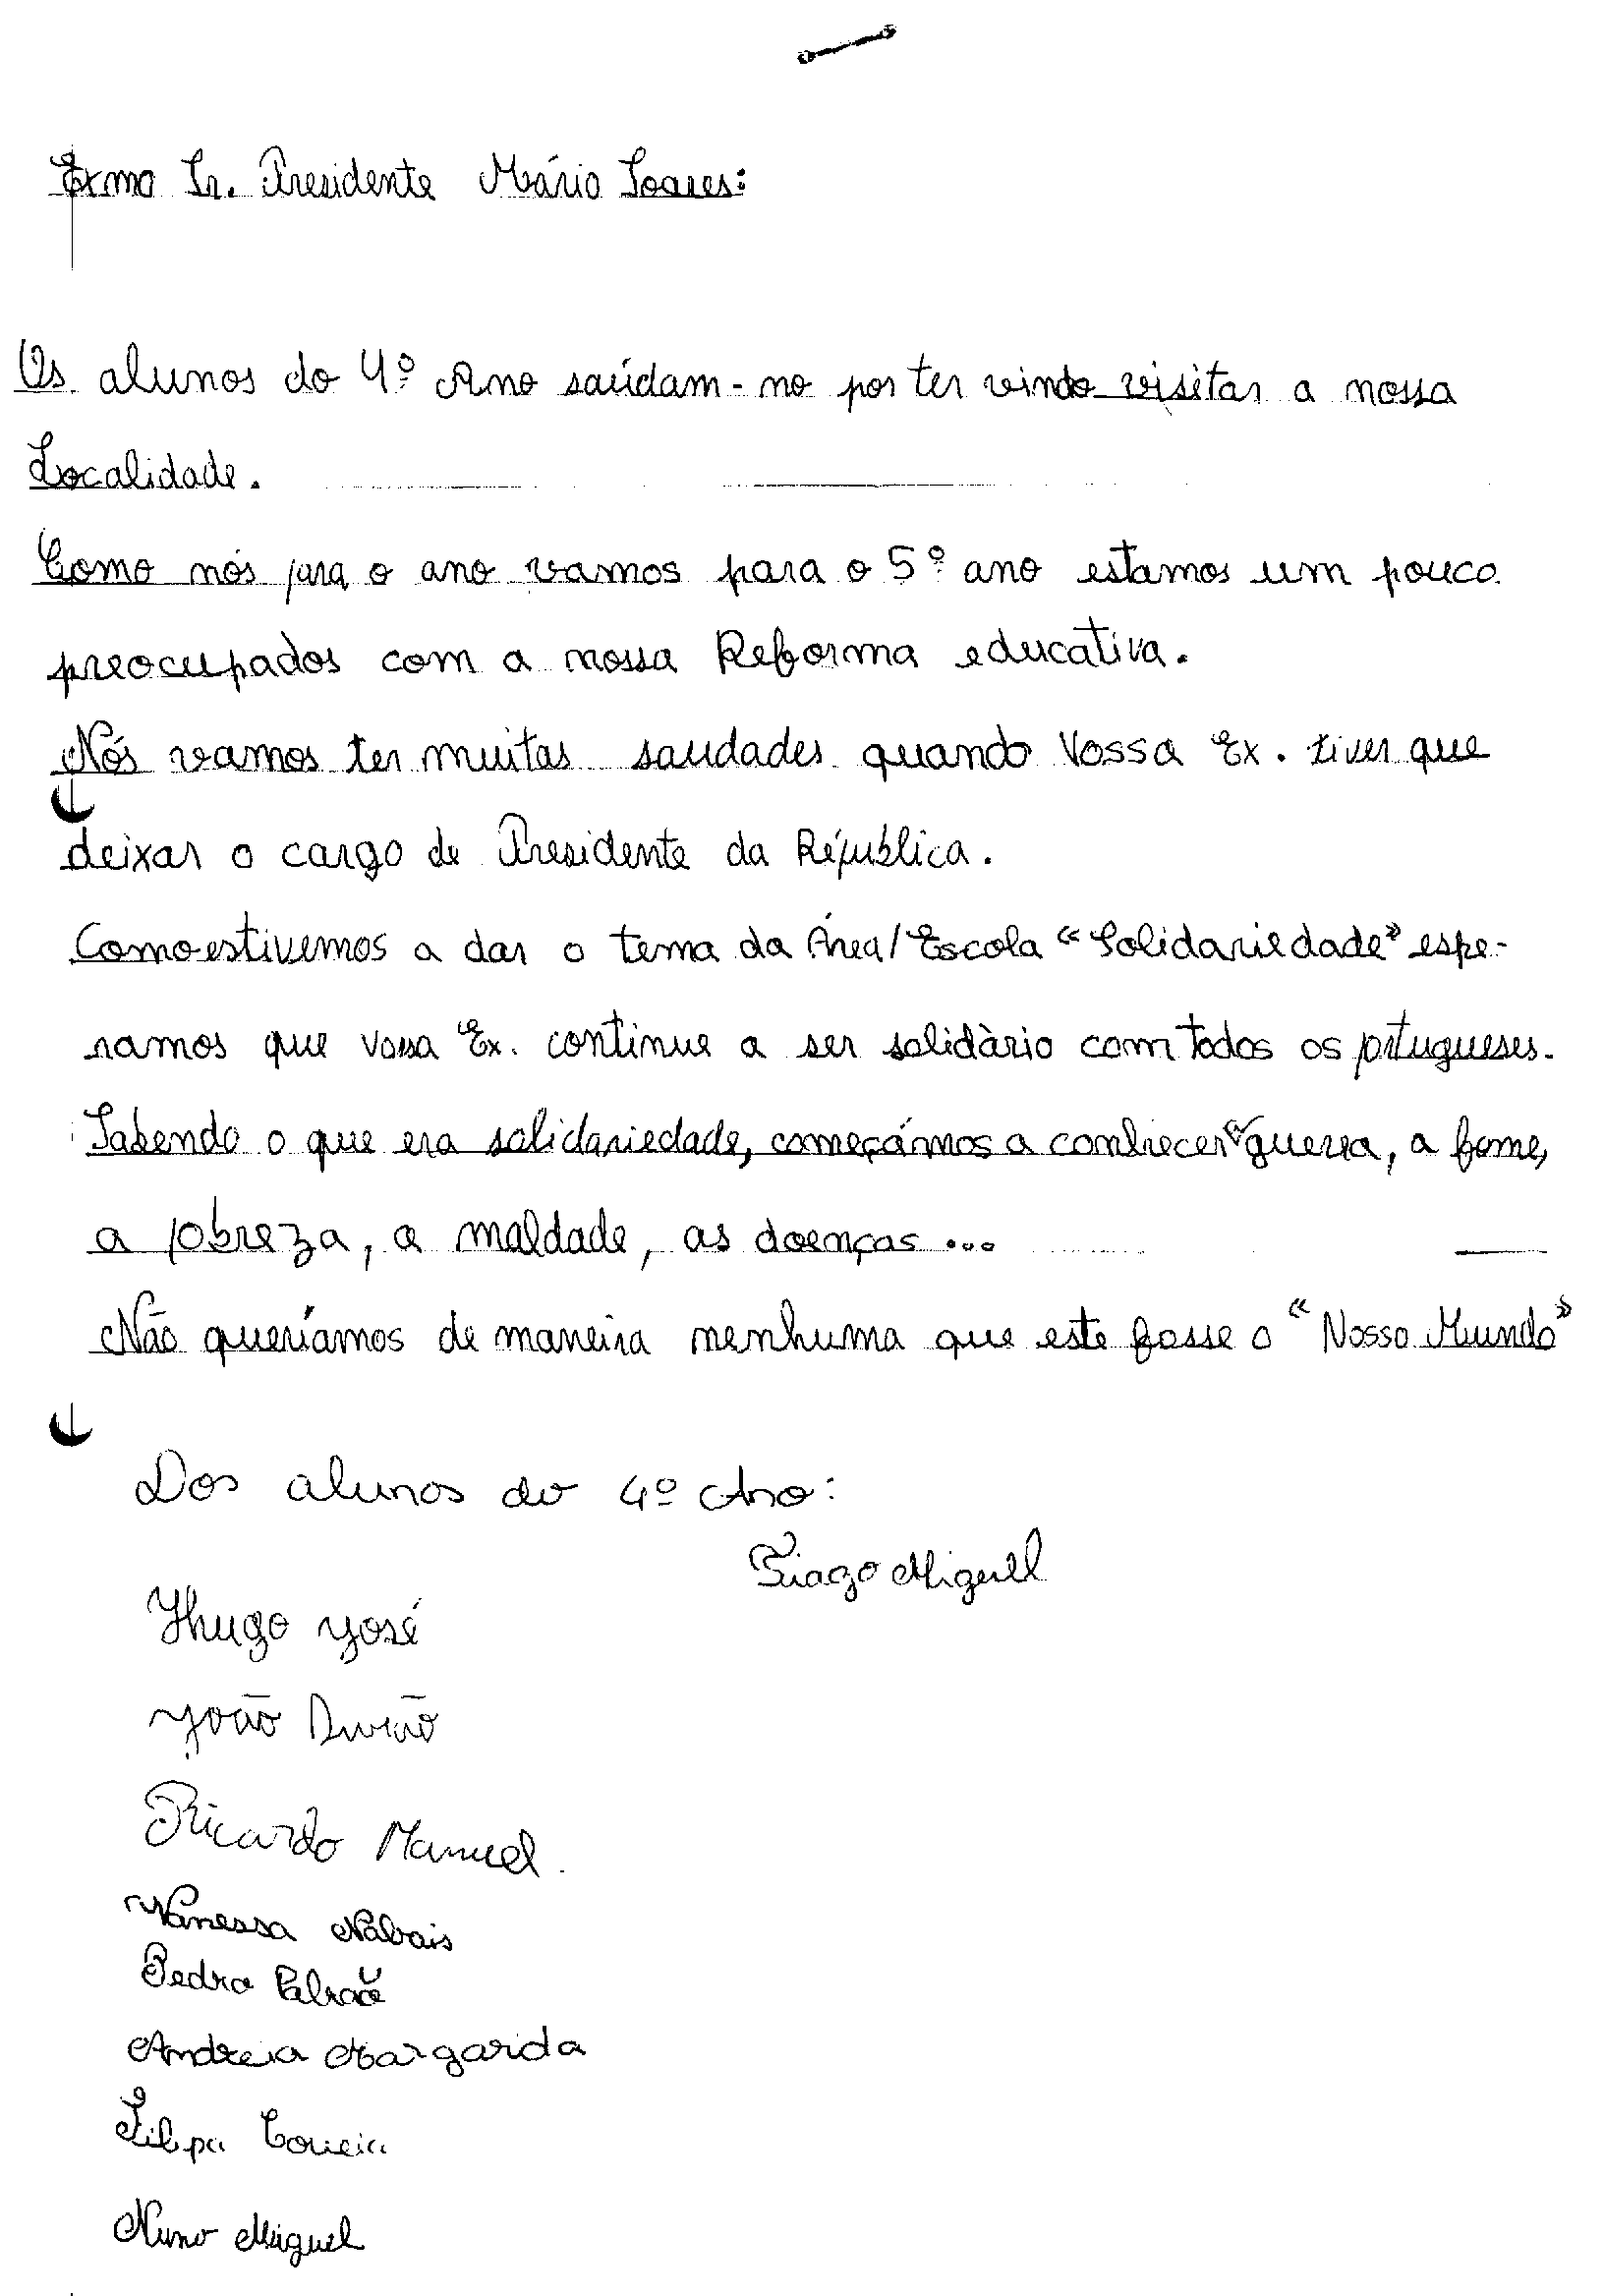 Exmo Sr. Presidente Mário Soares:
Os alunos do 4º Ano saúdam-no por ter vindo visitar a nossa
Localidade.
Como nós para o ano vamos para o 5º ano estamos um pouco
preocupados com a nossa Reforma educativa.
Nós vamos ter muitas saudades quando Vossa Ex. tiver que
deixar o cargo de Presidente da Républica.
Como estivemos a dar o tema da Área/Escola «Solidariedade» espe-
ramos que vossa Ex. continue a ser solidàrio com todos os portugueses.
Sabendo o que era solidariedade, começámos a conhecer a guerra, a fome,
a pobreza, a maldade, as doenças...
Não queríamos de maneira nenhuma que este fosse o «Nosso Mundo»
Dos alunos do 4º Ano:
Tiago Miguel
Hugo José
João Durão
Ricardo Manuel.
Vanessa Nabais
Pedro
Andreia Margarida
Filipa Correia
Nuno Miguel